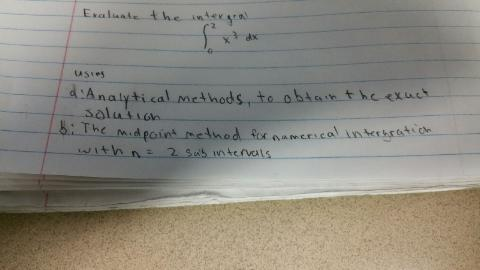 Evaluate the intergral
∫₀² x³ dx
using
a: Analytical methods, to obtain the exact
solution
b: The midpoint method for numerical intergration
with n = 2 sub intervals